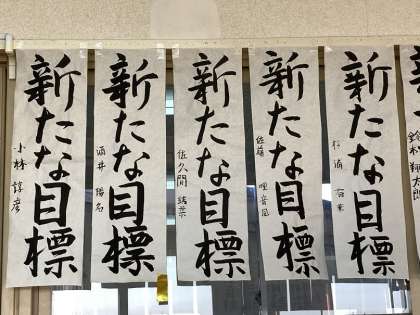 新たな目標
小林 諄彦
新たな目標
酒井 陽名
新たな目標
佐久間 結菜
新たな目標
佐藤 哩音風
新たな目標
杉浦
鈴木 翔太郎